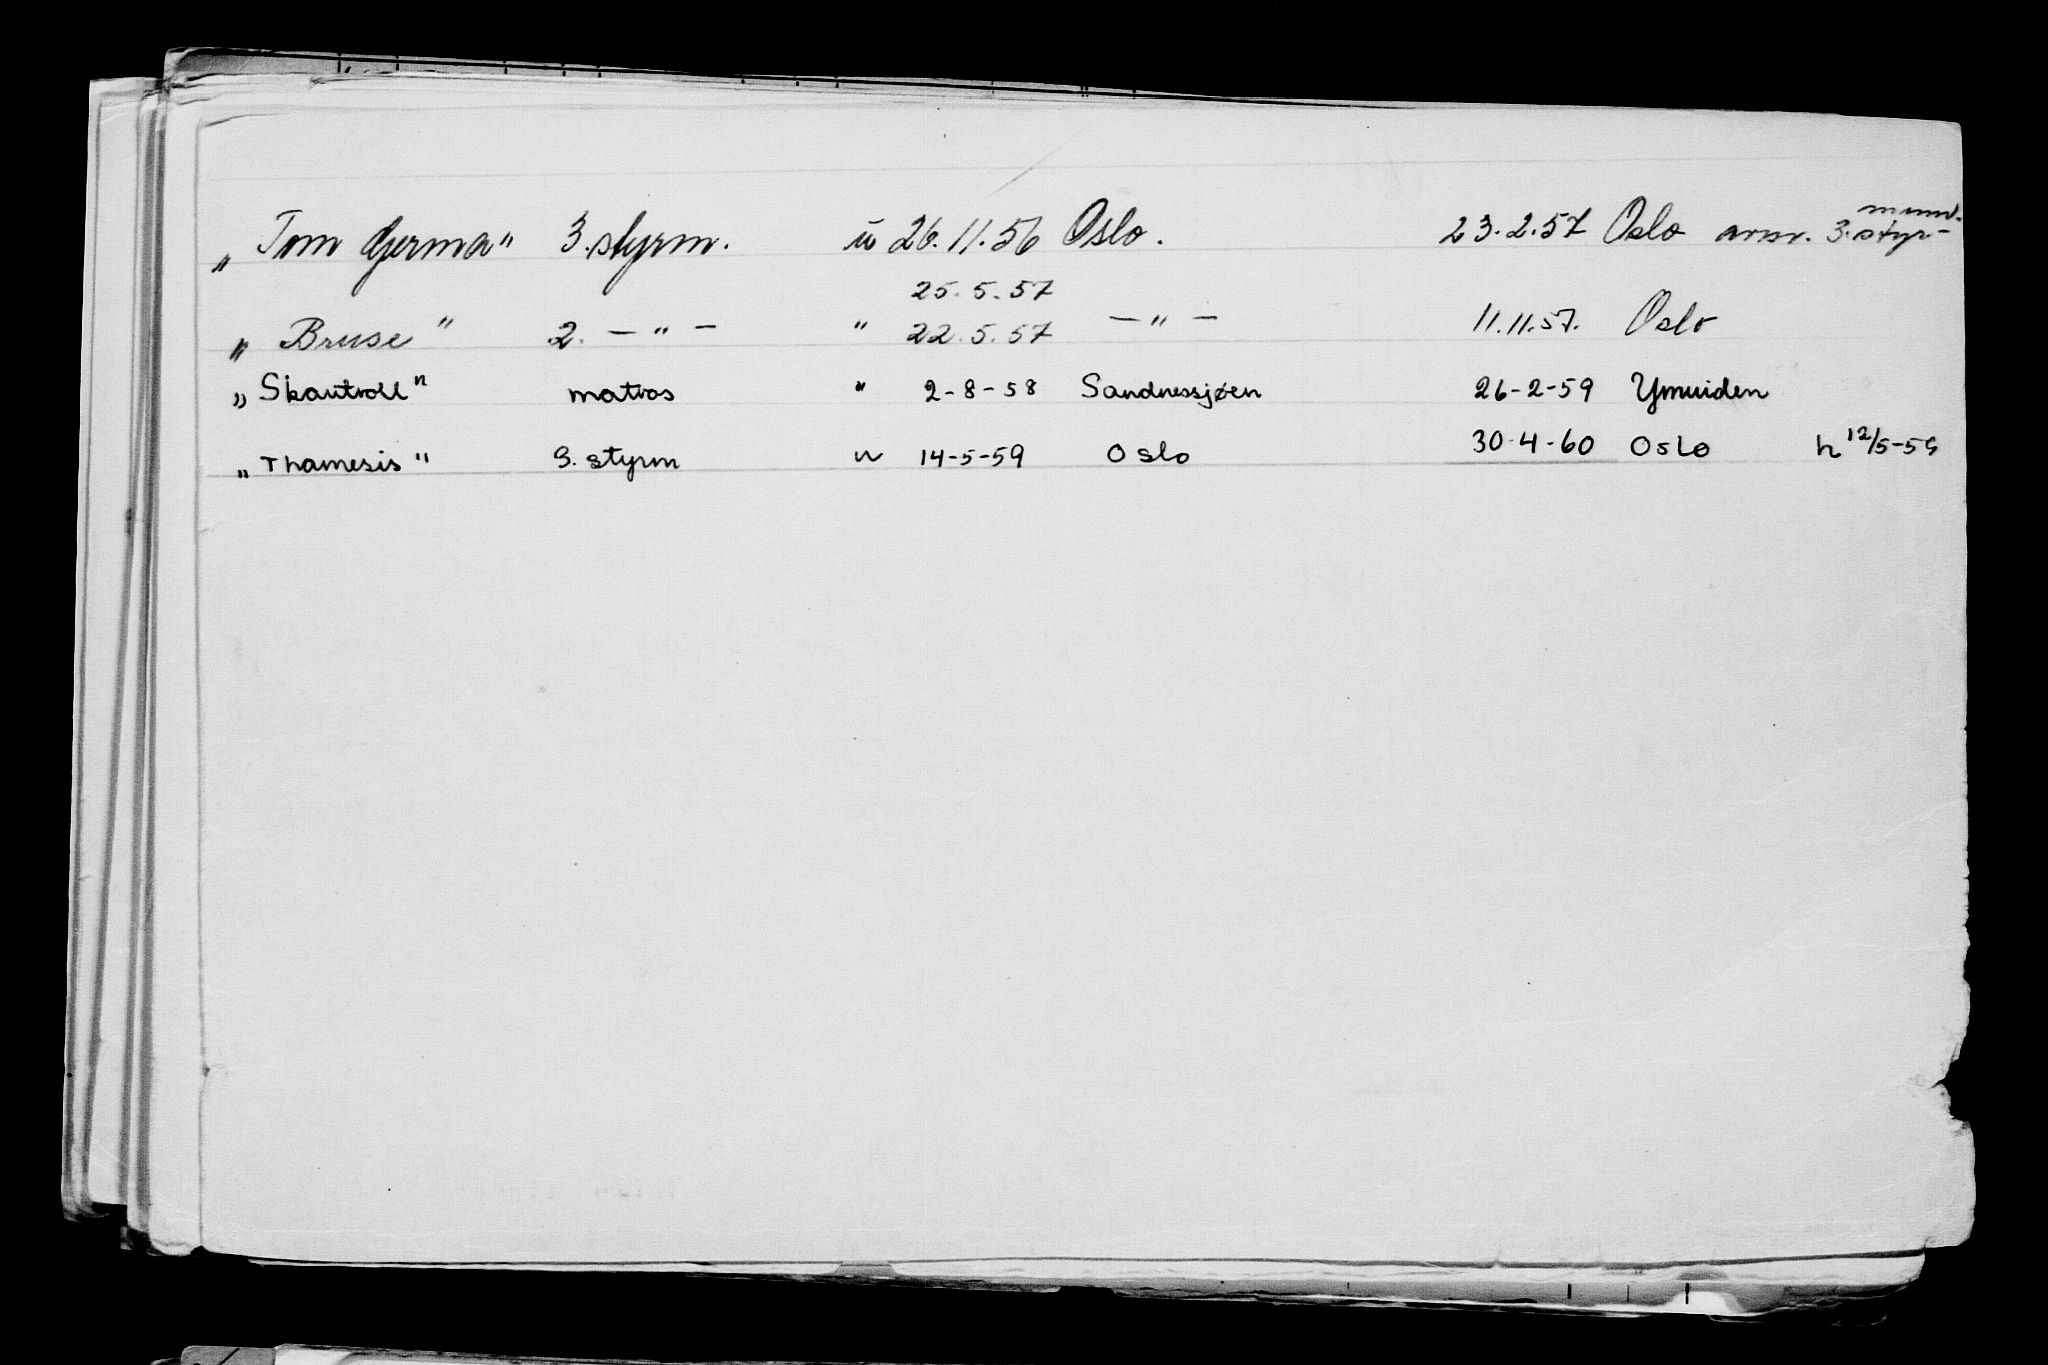 „Tom Gjerma" 3. styrm. u 26.11.56 Oslo. 23.2.57 Oslo 3. styr-
25.5.57
„Bruse" 2. — " — " 22.5.57 — " — 11.11.57. Oslo
„Skautroll" matros " 2-8-58 Sandnessjøen 26-2-59 Ymuiden
„Thamesis" 3. styrm u 14-5-59 Oslo 30-4-60 Oslo h 12/5-59